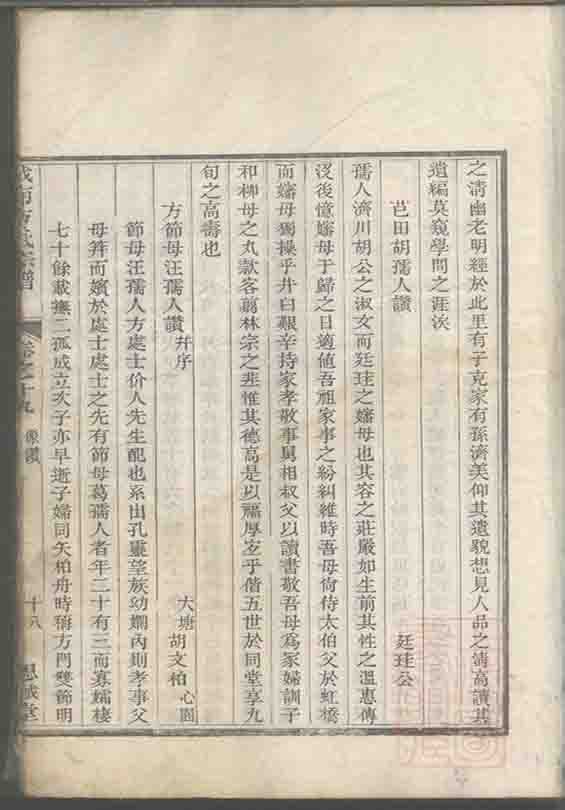 之清幽老明經於此里有子克家有孫濟美仰其遺貌想見人品之清高讀其
遺編莫窺學問之涯涘
芭田胡孺人讚
廷珪公
孺人濟川胡公之淑女而廷珪之嬸母也其容之莊嚴如生前其性之溫惠傳
沒後憶嬸母于歸之日適値吾祖家事之紛糾維時吾母尙侍太伯父於虹橋
而嬸母獨操乎井臼艱辛持家孝敬事舅相叔父以讀書敬吾母爲冢婦訓子
和柳母之丸款客翦林宗之韭惟其德高是以福厚宐乎偕五世於同堂享九
旬之高壽也
方節母汪孺人讚 幷序
大塘胡文柏 心園
節母汪孺人方處士价人先生配也系出孔靈望族幼嫻內則孝事父
母笄而嬪於處士處士之先有節母葛孺人者年二十有三而寡孀棲
七十餘載撫二孤成立次子亦早逝子婦同矢柏舟時稱方門雙節明
方氏宗譜
卷之十九
像讚
十八
思誠堂